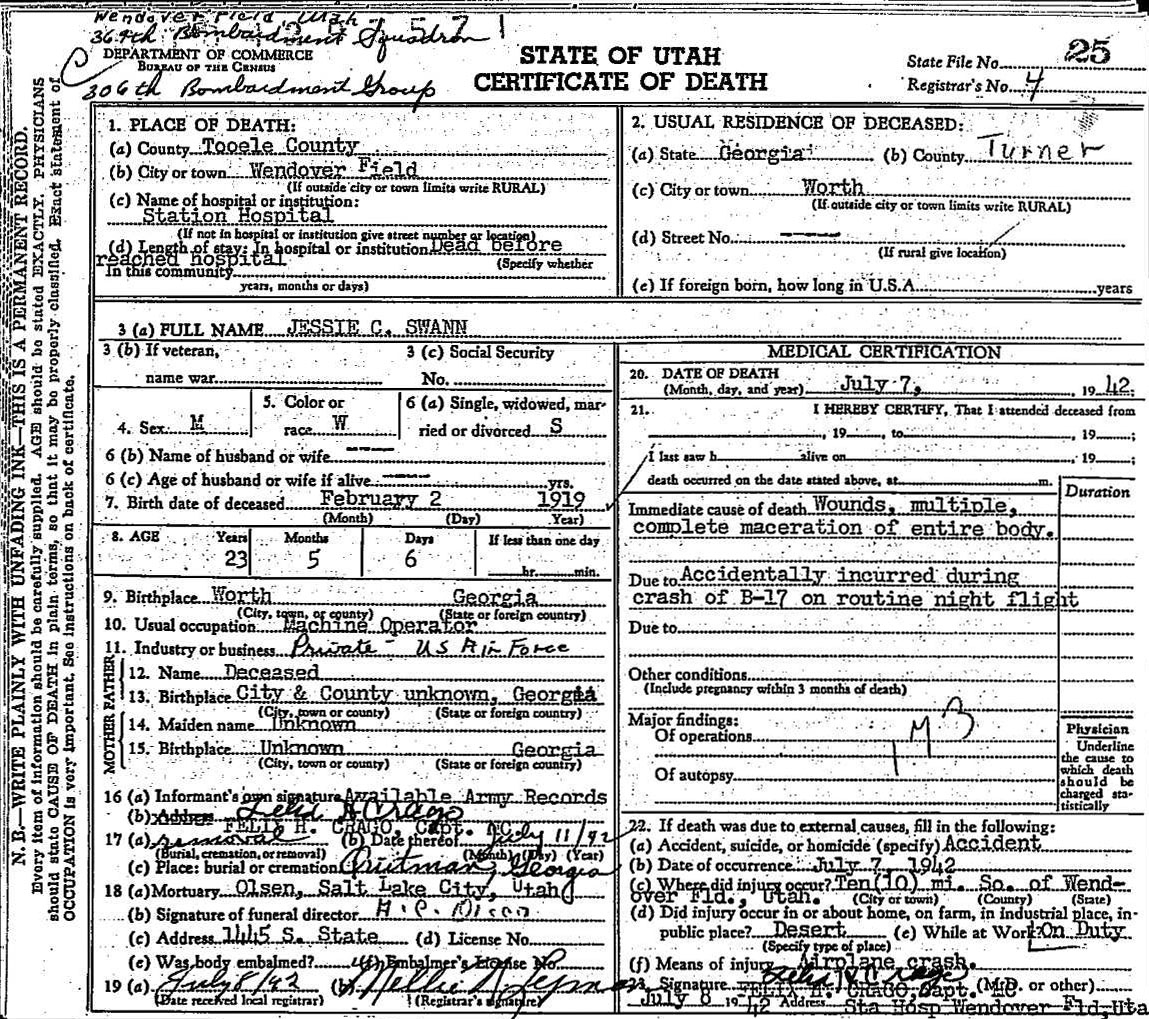 Wendover Field, Utah
364th Bombardment Squadron
DEPARTMENT OF COMMERCE
BUREAU OF THE CENSUS
306th Bombardment Group
STATE OF UTAH
CERTIFICATE OF DEATH
State File No. 25
Registrar's No. 4
N. B.—WRITE PLAINLY WITH UNFADING INK—THIS IS A PERMANENT RECORD.
Every item of information should be carefully supplied. AGE should be stated EXACTLY. PHYSICIANS
should state CAUSE OF DEATH in plain terms, so that it may be properly classified. Exact statement of
OCCUPATION is very important. See instructions on back of certificate.
1. PLACE OF DEATH:
(a) County Tooele County
(b) City or town Wendover Field
(If outside city or town limits write RURAL)
(c) Name of hospital or institution:
Station Hospital
(If not in hospital or institution give street number or location)
(d) Length of stay: In hospital or institution Dead before
reached hospital (Specify whether
In this community
years, months or days)
2. USUAL RESIDENCE OF DECEASED:
(a) State Georgia (b) County Turner
(c) City or town Worth
(If outside city or town limits write RURAL)
(d) Street No.
(If rural give location)
(e) If foreign born, how long in U.S.A. years
3 (a) FULL NAME JESSIE C. SWANN
3 (b) If veteran, 3 (c) Social Security
name war No.
4. Sex M 5. Color or race W 6 (a) Single, widowed, mar-
ried or divorced S
6 (b) Name of husband or wife
6 (c) Age of husband or wife if alive yrs.
7. Birth date of deceased February 2 1919
(Month) (Day) Year)
8. AGE Years Months Days If less than one day
23 5 6 hr. min.
9. Birthplace Worth Georgia
(City, town, or county) (State or foreign country)
10. Usual occupation Machine Operator
11. Industry or business Private - US Air Force
FATHER
12. Name Deceased
13. Birthplace City & County unknown, Georgia
(City, town or county) (State or foreign country)
MOTHER
14. Maiden name Unknown
15. Birthplace Unknown Georgia
(City, town or county) (State or foreign country)
16 (a) Informant's own signature Available Army Records
(b) Address
FELIX H. CRAGO, Capt. MC
17 (a) removal (b) Date thereof July 11/42
(Burial, cremation, or removal) (Month) (Day) (Year)
(c) Place: burial or cremation Quitman, Georgia
18 (a) Mortuary Olsen, Salt Lake City, Utah
(b) Signature of funeral director
(c) Address 1445 S. State (d) License No.
(e) Was body embalmed? (f) Embalmer's License No.
19 (a) July 8/42 (b) Nellie
(Date received local registrar) (Registrar's signature)
MEDICAL CERTIFICATION
20. DATE OF DEATH
(Month, day, and year) July 7, 19 42
21. I HEREBY CERTIFY, That I attended deceased from
, 19 , to , 19 ;
I last saw h alive on , 19 ;
death occurred on the date stated above, at m.
Duration
Immediate cause of death Wounds, multiple,
complete maceration of entire body.
Due to Accidentally incurred during
crash of B-17 on routine night flight
Due to
Other conditions
(Include pregnancy within 3 months of death)
Major findings:
Of operations
Of autopsy
Physician
Underline
the cause to
which death
should be
charged sta-
tistically
22. If death was due to external causes, fill in the following:
(a) Accident, suicide, or homicide (specify) Accident
(b) Date of occurrence July 7, 1942
(c) Where did injury occur? Ten(10) mi. So. of Wend-
over Fld., Utah. (City or town) (County) (State)
(d) Did injury occur in or about home, on farm, in industrial place, in-
public place? Desert (e) While at Work? On Duty
(Specify type of place)
(f) Means of injury Airplane crash.
23. Signature FELIX H. CRAGO, Capt. MC (M.D. or other)
July 8 19 42 Address Sta Hosp Wendover Fld, Uta